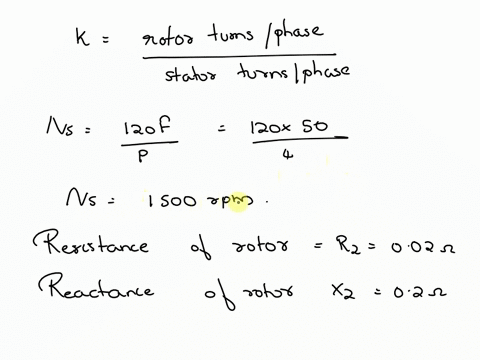 K = rotor turns /phase / stator turns/phase
Ns = 120f / P = 120x 50 / 4
Ns = 1500 rpm.
Resistance of rotor = R2 = 0.02 Ω
Reactance of rotor X2 = 0.2 Ω